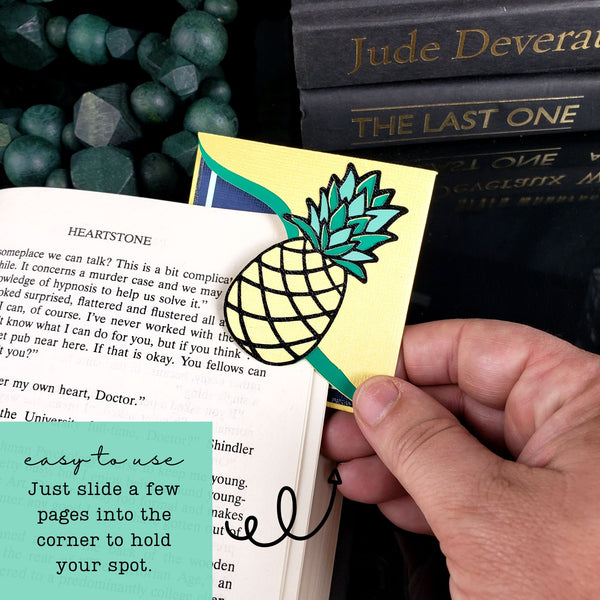 Jude Deverau
THE LAST ONE
HEARTSTONE
someplace we can talk? This is a bit complica
while. It concerns a murder case and we may
owledge of hypnosis to help us solve it."
oked surprised, flattered and flustered all a
I can, of course. I've never worked with the
't know what I can do for you, but if you think
et pub near here. If that is okay. You fellows can
t you?"
er my own heart, Doctor."
the University full-time, Doctor?" Shindler
young.
young-
makes
out of
wooden
an
college
easy to use
Just slide a few
pages into the
corner to hold
your spot.